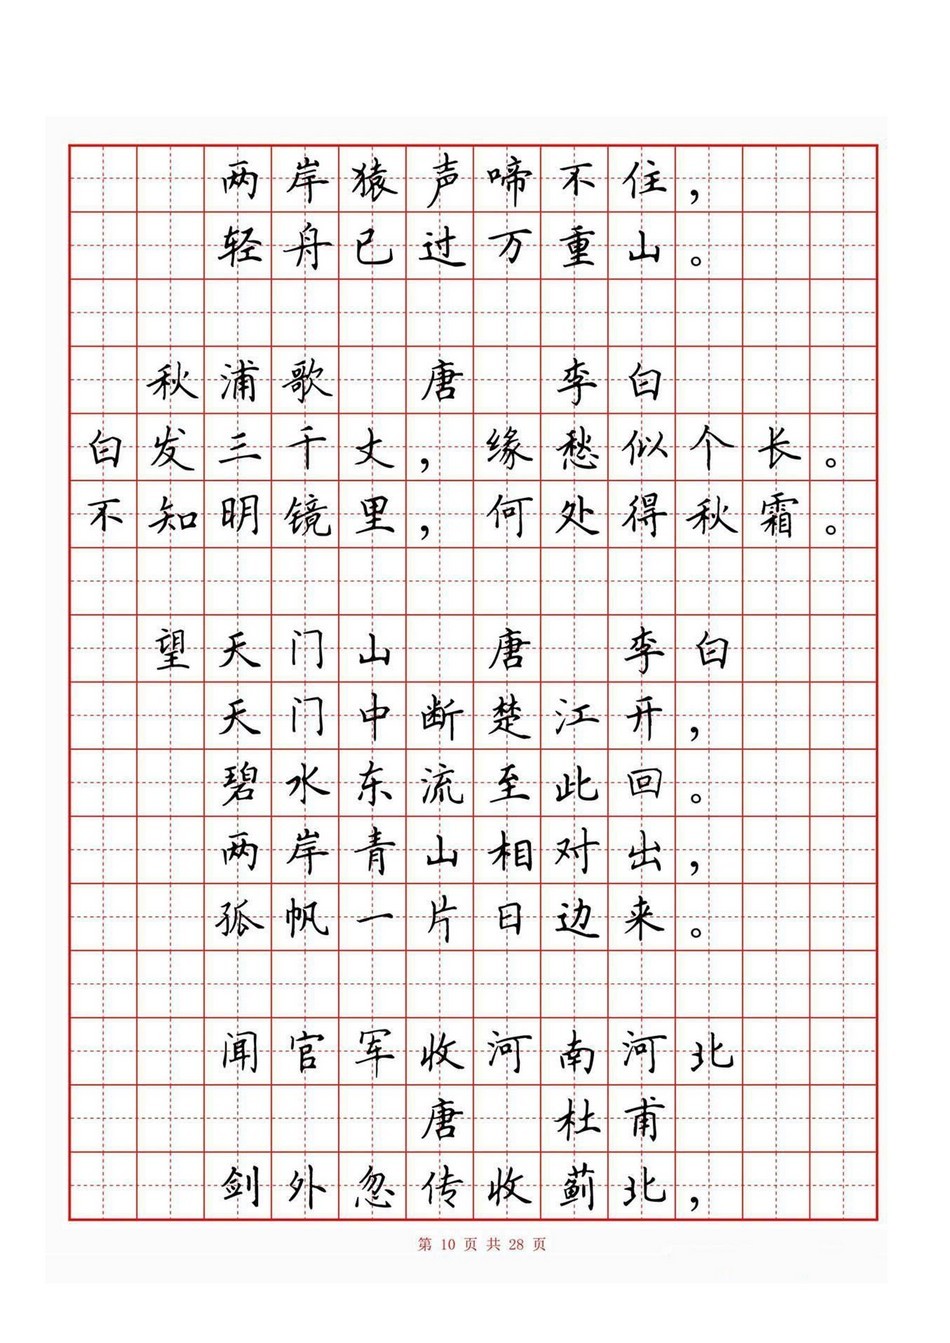 两岸猿声啼不住，
轻舟已过万重山。
秋浦歌 唐 李白
白发三千丈，缘愁似个长。
不知明镜里，何处得秋霜。
望天门山 唐 李白
天门中断楚江开，
碧水东流至此回。
两岸青山相对出，
孤帆一片日边来。
闻官军收河南河北
唐 杜甫
剑外忽传收蓟北，
第 10 页 共 28 页